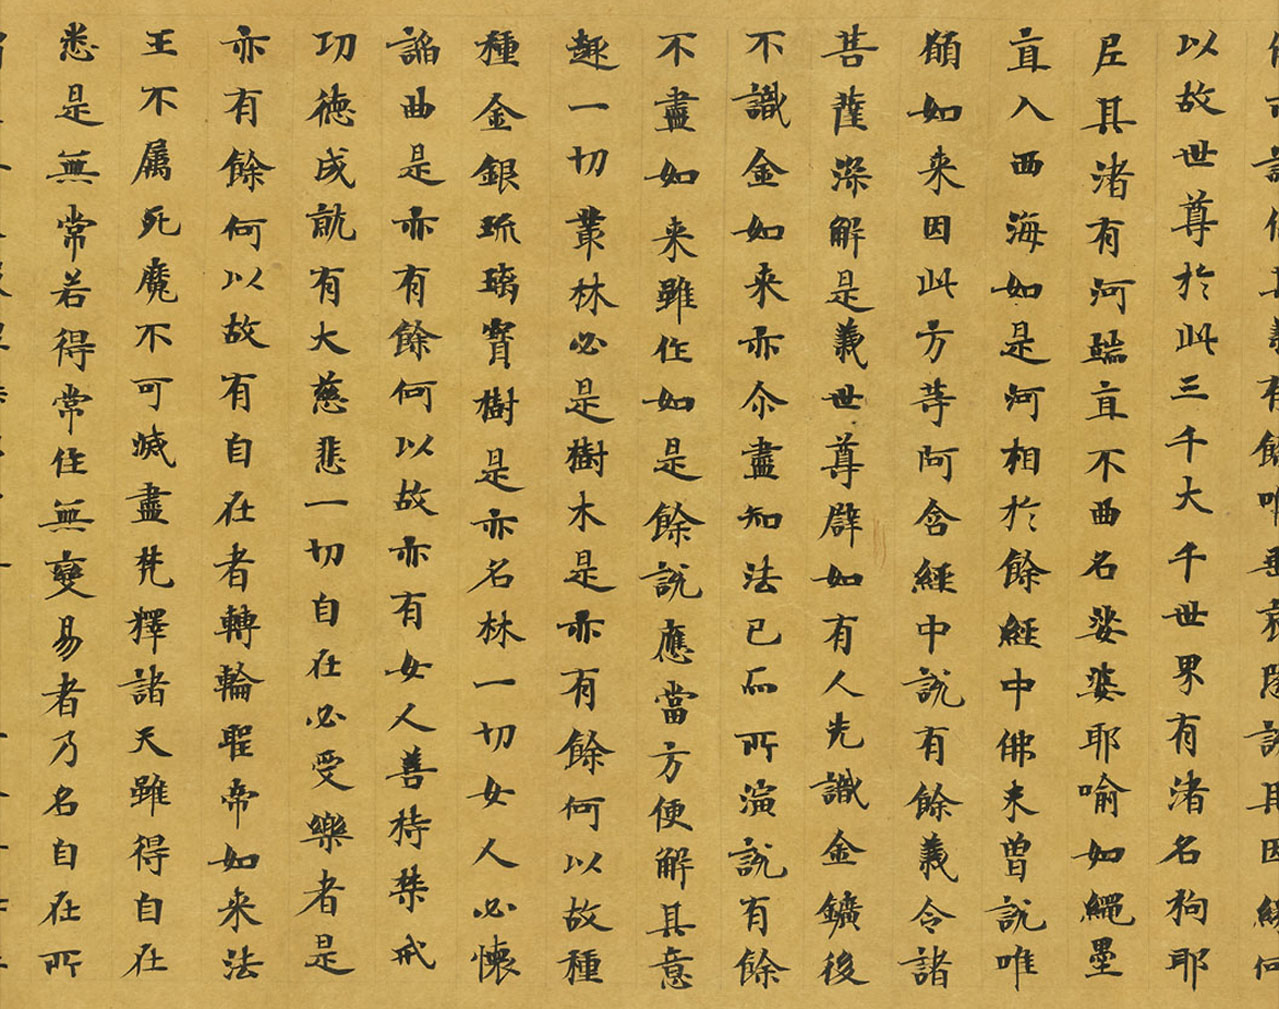 有餘唯垂哀
以故世尊於此三千大千世界有渚名狗耶
尼其渚有河端直不曲名娑婆耶喻如繩墨
直入西海如是河相於餘經中佛未曾說唯
願如来因此方等阿含經中說有餘義令諸
菩薩深解是義世尊辟如有人先識金鑛後
不識金如来亦尒盡知法已而所演說有餘
不盡如来雖作如是餘說應當方便解其意
趣一切叢林必是樹木是亦有餘何以故種
種金銀琉璃寳樹是亦名林一切女人必懷
諂曲是亦有餘何以故亦有女人善持禁戒
功德成就有大慈悲一切自在必受樂者是
亦有餘何以故有自在者轉輪聖帝如来法
王不属死魔不可滅盡梵釋諸天雖得自在
悉是無常若得常住無變易者乃名自在所